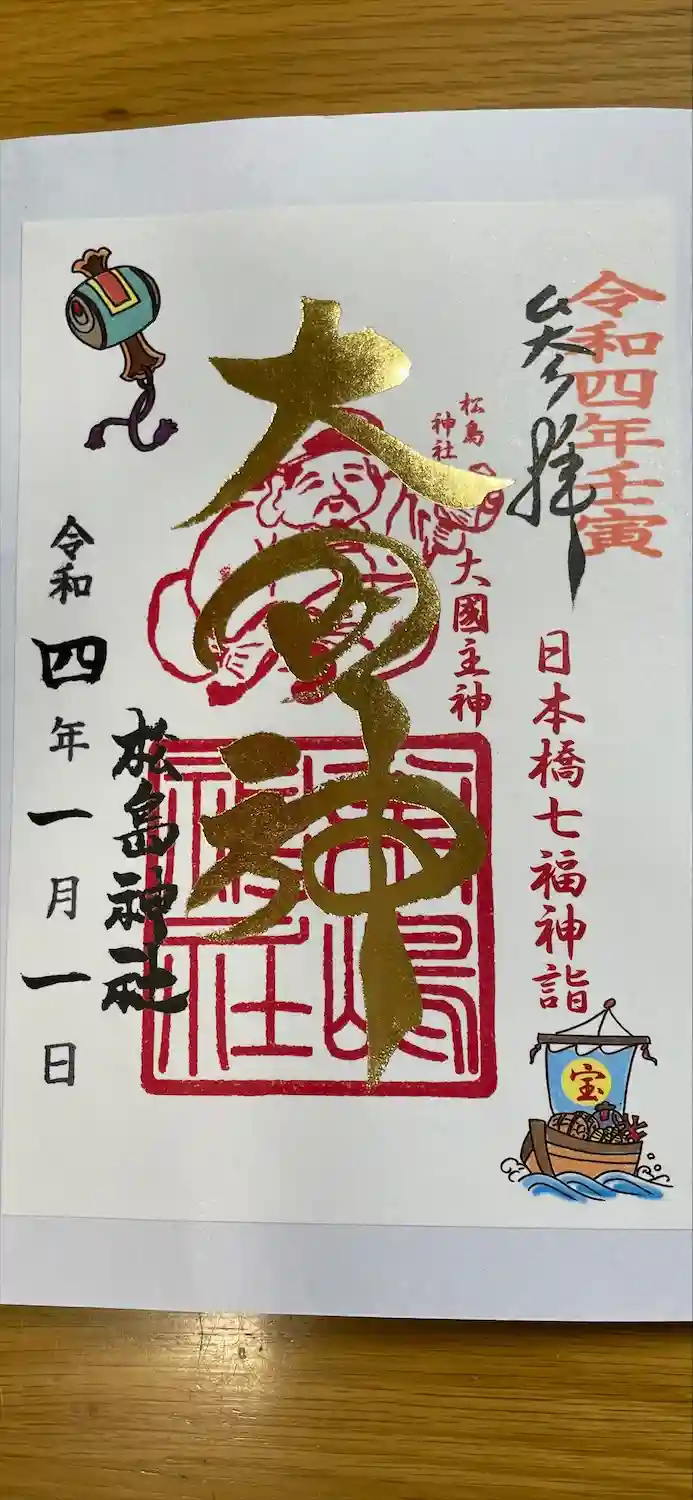 令和四年壬寅
参拝
日本橋七福神詣
宝
松島
神社
大國主神
大国神
松嶋
神社
松島神社
令和四年一月一日